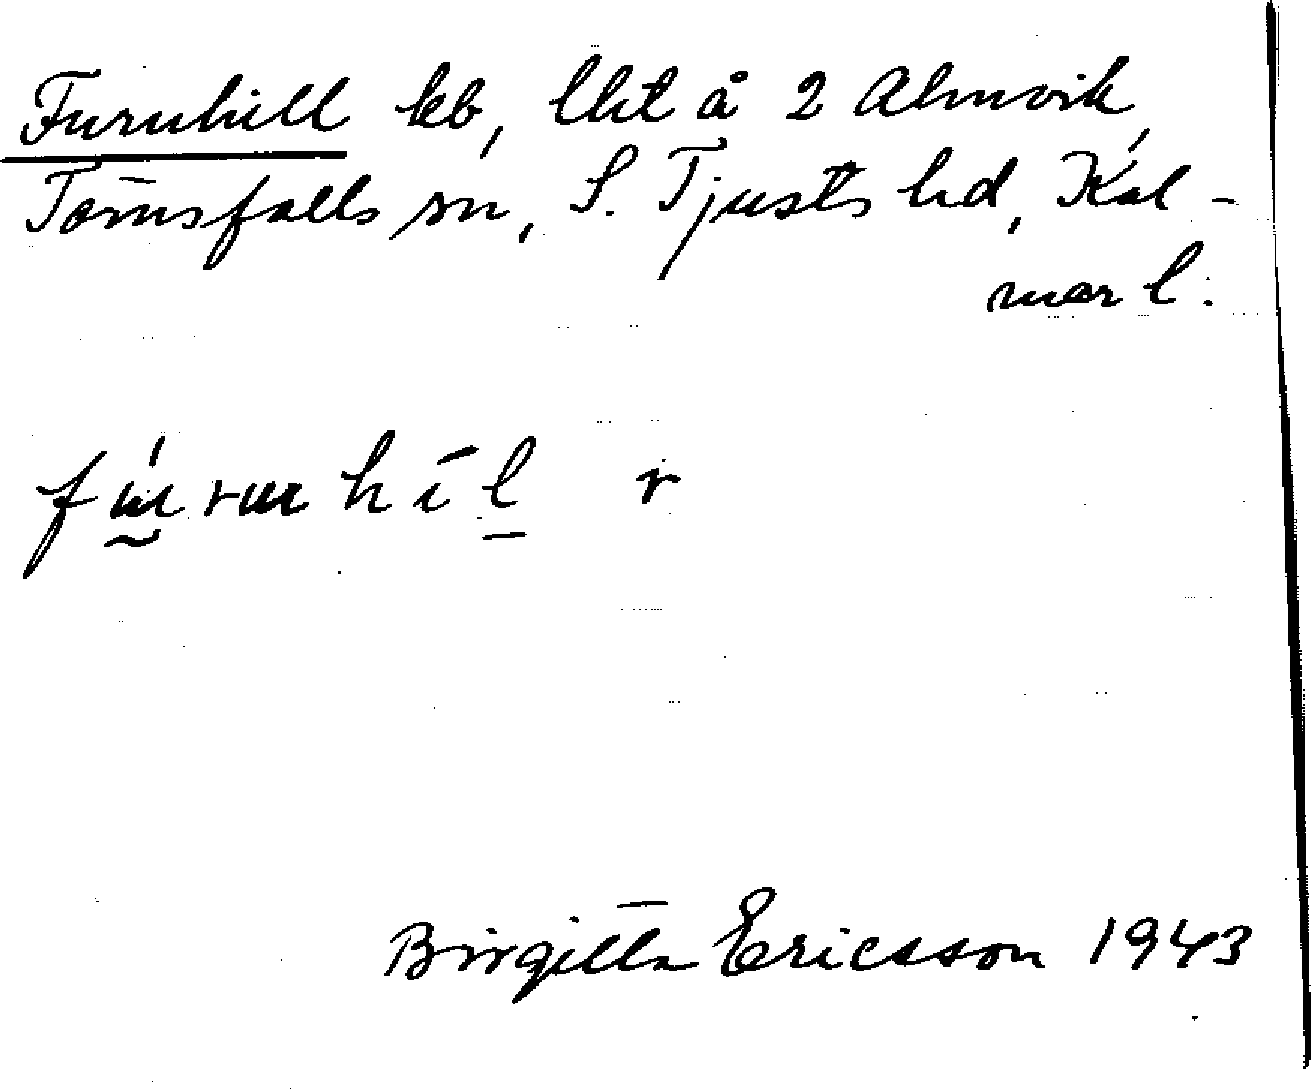 Furuhill lb, lht å 2 Almvik,
Törnsfalls sn, S. Tjusts hd, Kal-
mar l.
fúruhìl r
Birgitta Ericsson 1943